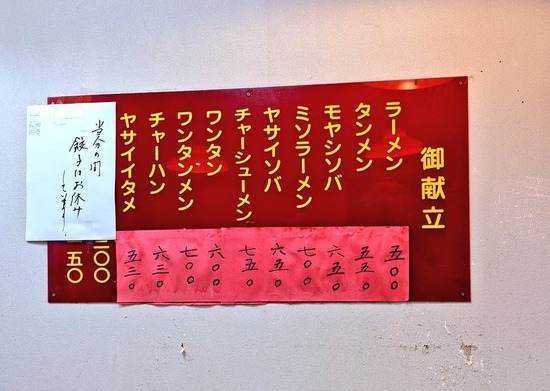 御献立
ラーメン 五〇〇
タンメン 五五〇
モヤシソバ 六五〇
ミソラーメン 七〇〇
ヤサイソバ 六五〇
チャーシューメン 七五〇
ワンタン 六〇〇
ワンタンメン 七〇〇
チャーハン 六三〇
ヤサイイタメ 五三〇
〇〇
五〇
当分の間
餃子はお休み